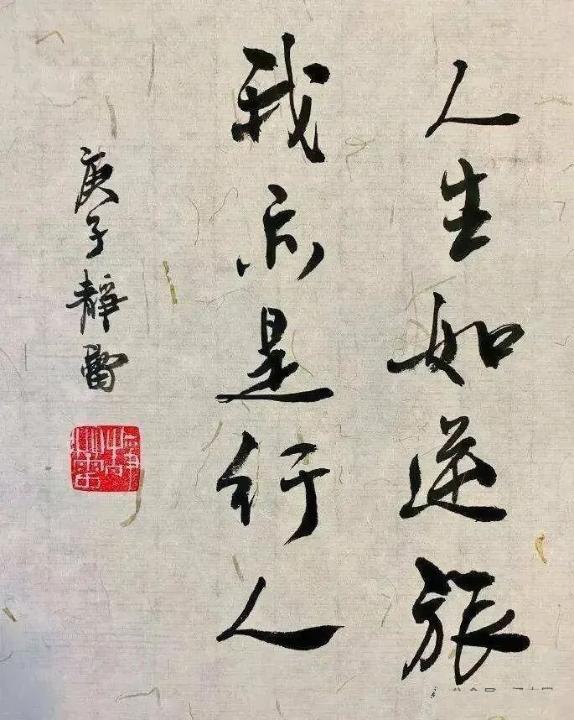 人生如逆旅
我亦是行人
庚子靜蕾